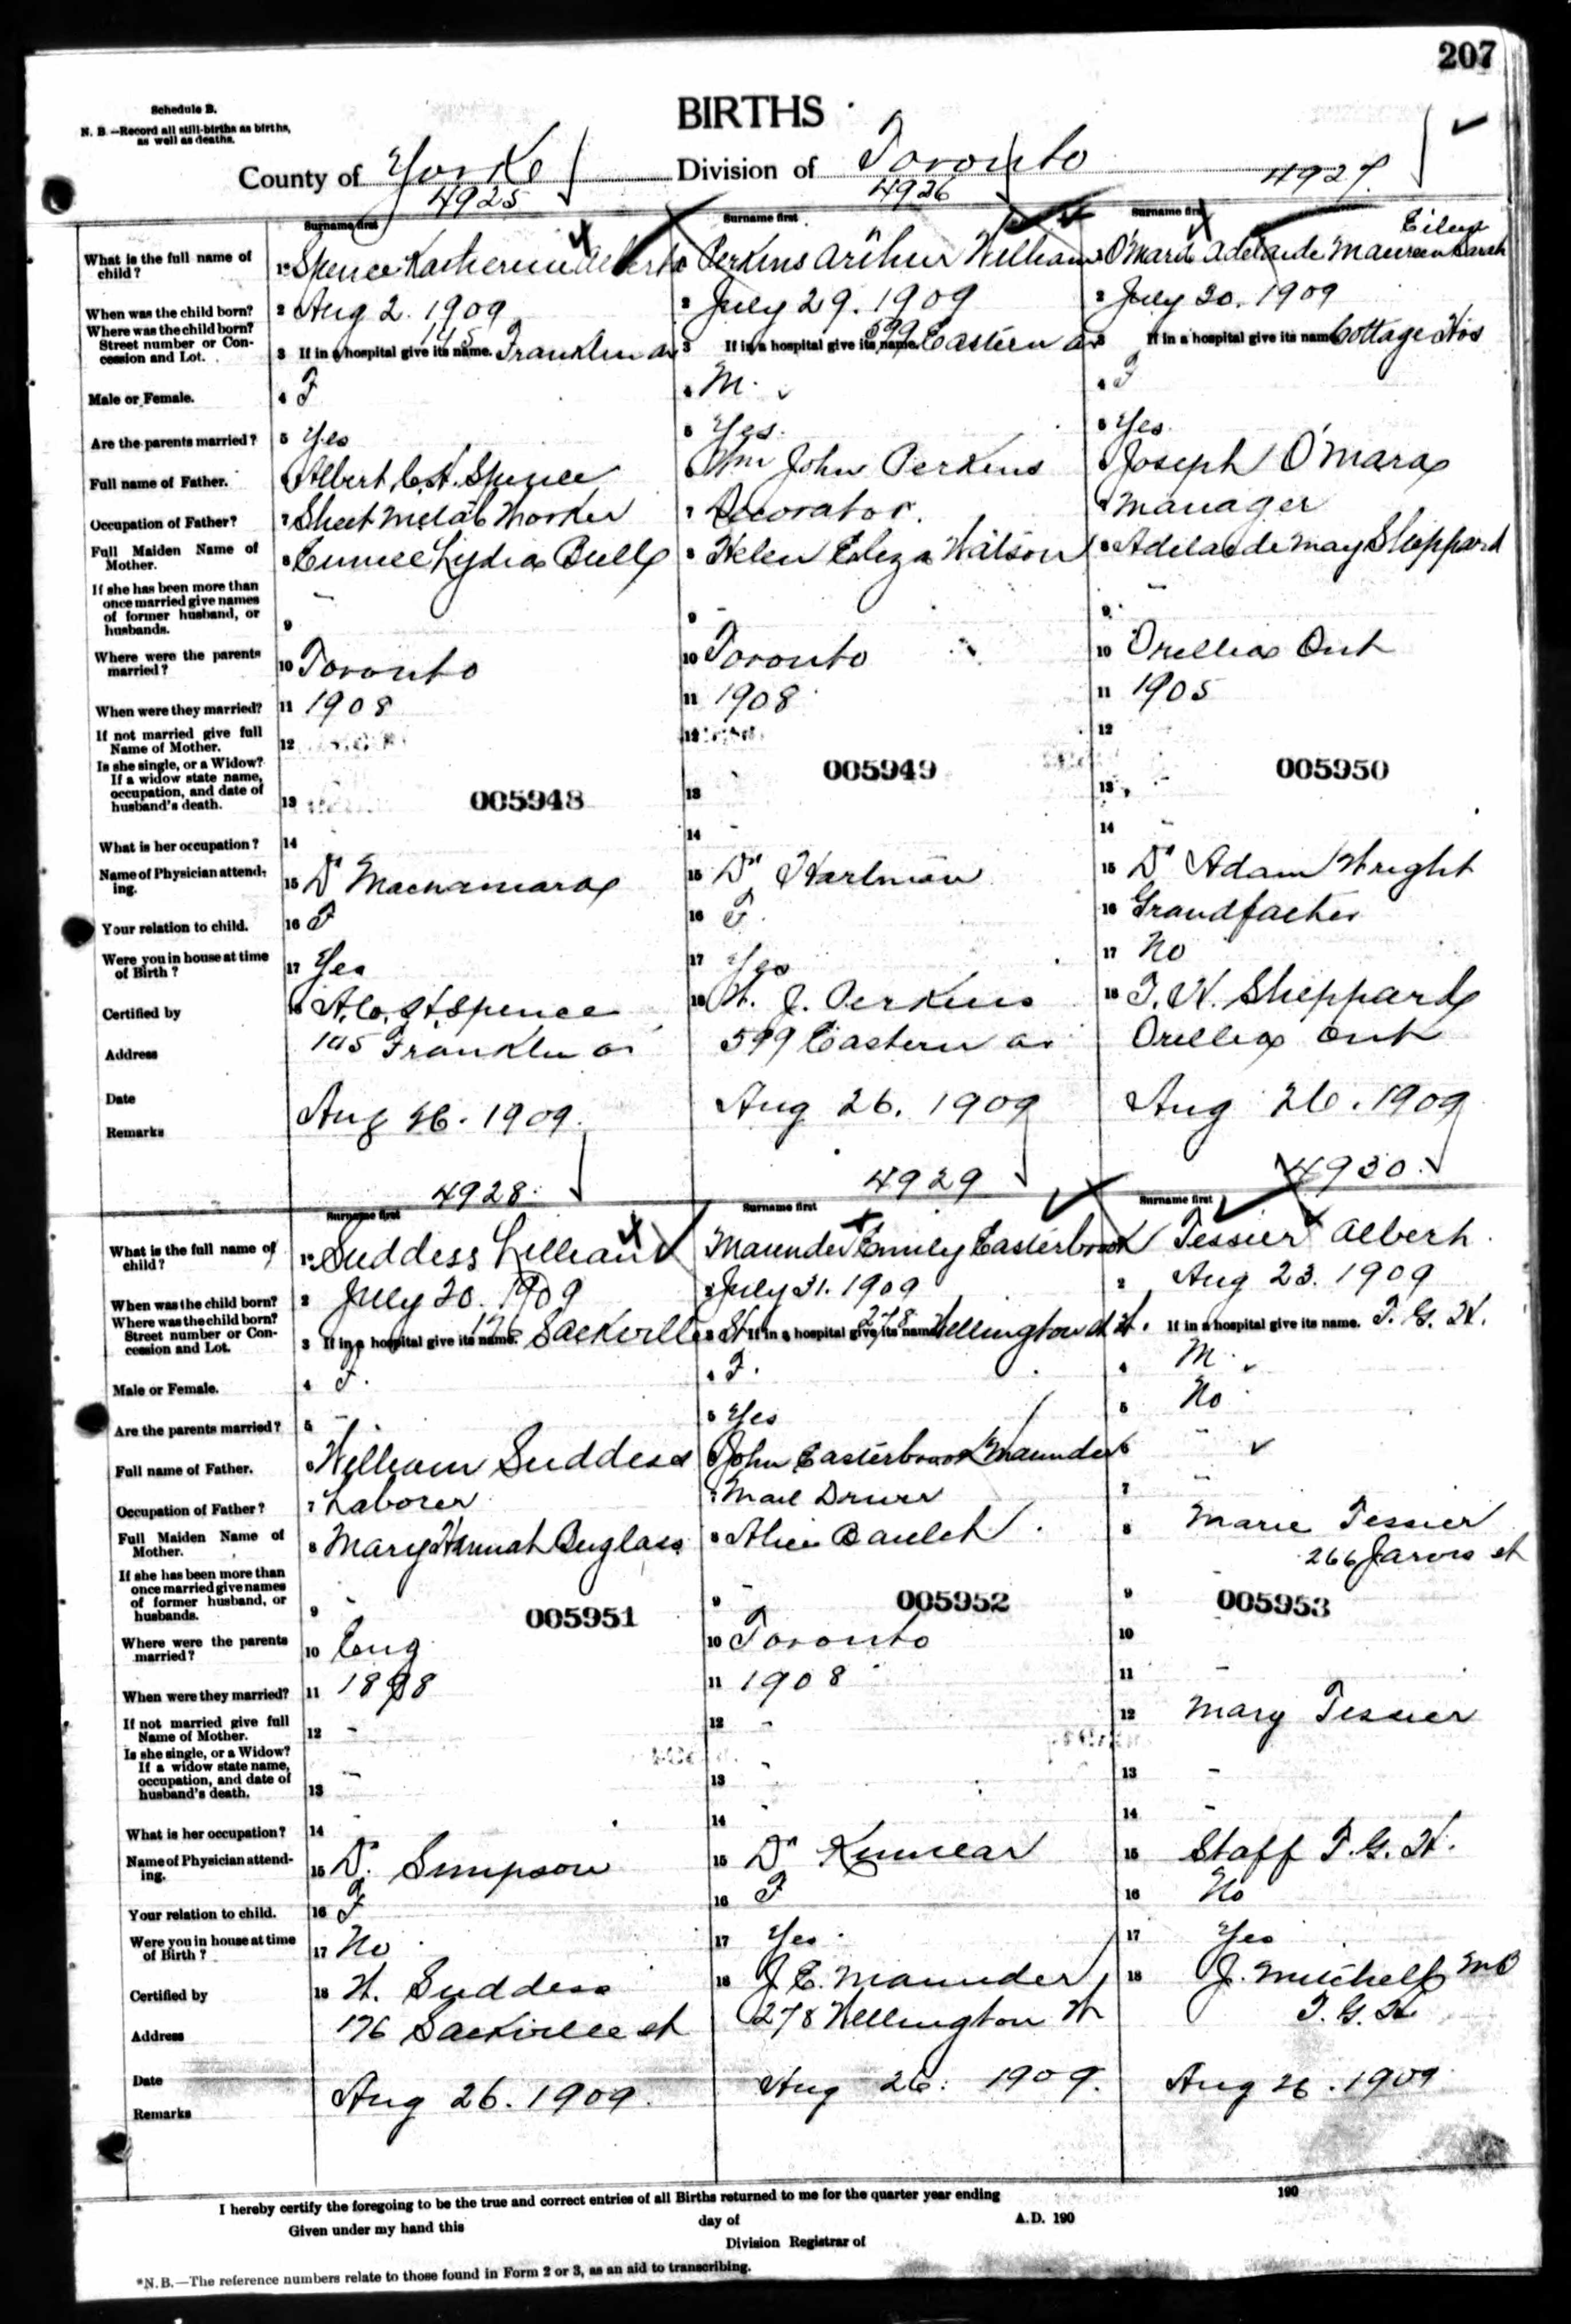 207
Schedule B.
N. B.—Record all still-births as births,
as well as deaths.
BIRTHS
County of Yorke Division of Toronto
4925 4926 4927
Surname first Surname first Surname first
What is the full name of
child?
1 Spence Katherine Alberta
Perkins Arthur William
Eileen
O'Mara Adelaide Maureen Sarah
When was the child born?
2 Aug 2. 1909
2 July 29. 1909
2 July 20. 1909
Where was the child born?
Street number or Con-
cession and Lot.
3 If in a hospital give its name. 145 Franklin av
3 If in a hospital give its name. 599 Eastern av
3 If in a hospital give its name Cottage Hos
Male or Female.
4 F
4 M.
4 F
Are the parents married?
5 Yes
5 Yes.
5 Yes
Full name of Father.
6 Albert St. Spence
6 Wm John Perkins
6 Joseph O'Mara
Occupation of Father?
7 Sheet Metal Worker
7 Decorator.
7 Manager
Full Maiden Name of
Mother.
8 Eunice Lydia Bull
8 Helen Eliza Watson
8 Adelaide May Sheppard
If she has been more than
once married give names
of former husband, or
husbands.
9 -
9 -
9 -
Where were the parents
married?
10 Toronto
10 Toronto
10 Orillia Ont
When were they married?
11 1908
11 1908
11 1905
If not married give full
Name of Mother.
12
12
12
Is she single, or a Widow?
If a widow state name,
occupation, and date of
husband's death.
13 005948
13 005949
13 005950
What is her occupation?
14
14 -
14 -
Name of Physician attend-
ing.
15 Dr Macnamara
15 Dr Hartman
15 Dr Adam Wright
Your relation to child.
16 F
16 F.
16 Grandfather
Were you in house at time
of Birth?
17 Yes
17 Yes
17 No
Certified by
18 A. C. St Spence
18 W. J. Perkins
18 T. W. Sheppard
Address
145 Franklin av
599 Eastern av
Orillia Ont
Date
Aug 26. 1909.
Aug 26. 1909
Aug 26. 1909
Remarks
4928 4929 4930
Surname first Surname first Surname first
What is the full name of
child?
1 Suddess Lillian
Maunder Emily Easterbrook
Tessier Albert
When was the child born?
2 July 20. 1909
2 July 31. 1909
2 Aug 23. 1909
Where was the child born?
Street number or Con-
cession and Lot.
3 If in a hospital give its name. 176 Sackville St
3 If in a hospital give its name 278 Wellington St W.
If in a hospital give its name. T. G. H.
Male or Female.
4 F.
4 F.
4 M
Are the parents married?
5 -
5 Yes
5 No
Full name of Father.
6 William Suddess
6 John Easterbrook Maunder
6 -
Occupation of Father?
7 Laborer
7 Mail Driver
7 -
Full Maiden Name of
Mother.
8 Mary Hannah Buglass
8 Alice Baulch
8 Marie Tessier
266 Jarvis st
If she has been more than
once married give names
of former husband, or
husbands.
9 - 005951
9 - 005952
9 005953
Where were the parents
married?
10 Eng
10 Toronto
10
When were they married?
11 1898
11 1908
11 -
If not married give full
Name of Mother.
12 -
12 -
12 Mary Tessier
Is she single, or a Widow?
If a widow state name,
occupation, and date of
husband's death.
13 -
13 -
13 -
What is her occupation?
14 -
14 -
14 -
Name of Physician attend-
ing.
15 Dr. Simpson
15 Dr Kinnear
15 Staff T. G. H.
Your relation to child.
16 F
16 F
16 No
Were you in house at time
of Birth?
17 No
17 Yes
17 Yes
Certified by
18 W. Suddess
18 J. E. Maunder
18 J. Mitchell MB
Address
176 Sackville st
278 Wellington W
T. G. H
Date
Aug 26. 1909.
Aug 26. 1909.
Aug 26. 1909
Remarks
I hereby certify the foregoing to be the true and correct entries of all Births returned to me for the quarter year ending 190
Given under my hand this day of A.D. 190
Division Registrar of
*N.B.—The reference numbers relate to those found in Form 2 or 3, as an aid to transcribing.